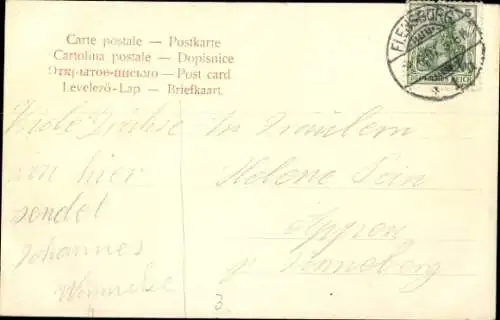 Carte postale — Postkarte
Cartolina postale — Dopisnice
Открытое-письмо — Post card
Levelező-Lap — Briefkaart.
FLENSBURG
DEUTSCHES REICH
5
Viele Grüße
von hier
sendet
Johannes
An Fräulein
Helene
Appen
Pinneberg
3.